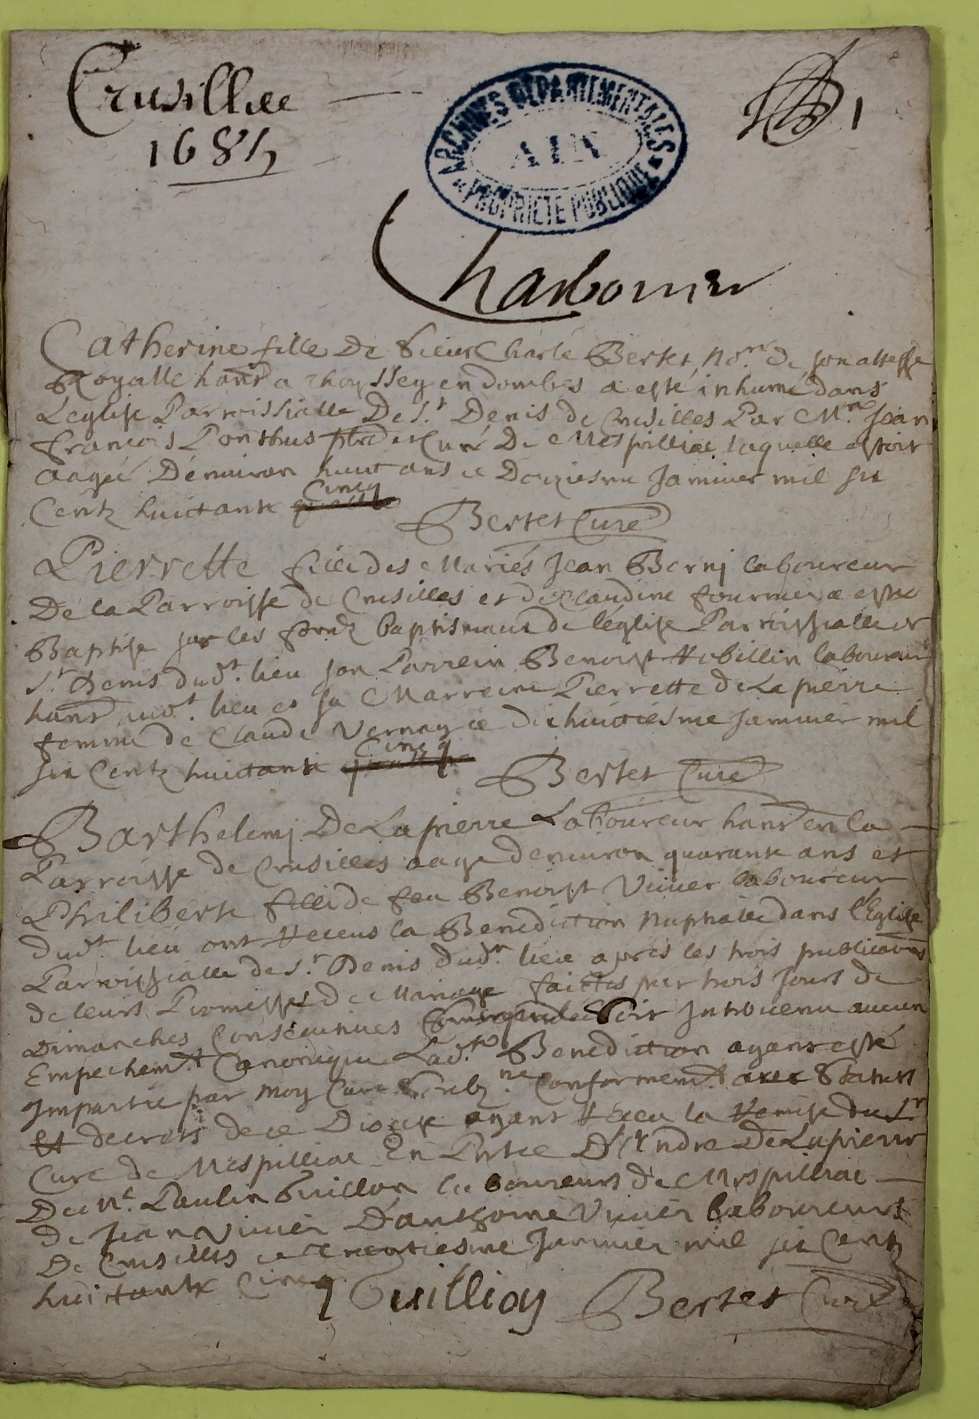 Crusillies
1685
ARCHIVES DEPARTEMENTALES
AIN
PROPRIETE PUBLIQUE
1
Charbonnier
Catherine fille De Sieur Charle Bertet No.re De son altesse
Royalle hant a Thoyssey en dombes a esté inhumé dans
L'eglise Parroissialle De S.t Denis de Crusilles Par M.re Jean
François Ponthus curé De Mespilliac laquelle estoit
aagée Denviron huict ans ce Douziesme Janvier mil six
Centz huictante Cincq
Bertet Curé
Pierrette fille des Mariés Jean Borni laboureur
De la Parroisse de Crusilles et de Claudine fournier a esté
Baptisé sur les fondz baptismaux de l'église Parroissialle de
S.t Denis dud.t lieu son Parrein Benoist Robillin laboureur
hant aud.t lieu et sa Marreine Pierrette de Lapierre
femme de Claude Vernay ce dixhuictiesme Janvier mil
six Centz huictante Cincq
Bertet Curé
Barthelemi De Lapierre Laboureur hant en la
Parroisse de Crusilles aagé denviron quarante ans et
Philiberte fille de feu Benoist Vivier laboureur
dud.t lieu ont Receus la Benediction Nuptialle dans l'Eglise
Parroissialle de S.t Denis dud.t lieu apres les trois publications
de leurs Promesses de Mariage faictes par trois Jours de
Dimanches Consécutives Soit Intrevenu aucun
Empechem.t Canonique Lad.te Benediction ayant esté
Impartie par Moy Curé Conformem.t aux Statuts
et decrets de ce Diocese ayant Receu la Remise du S.r
Curé de Mespilliac En Presce D'Andre De Lapierre
De Paulin Guillon laboureurs de Mespilliac
de Jean Vivier D'anthoine Vivier laboureurs
De Crusilles ce trentiesme Janvier mil six Centz
huictante Cincq
Guillion
Bertet Curé